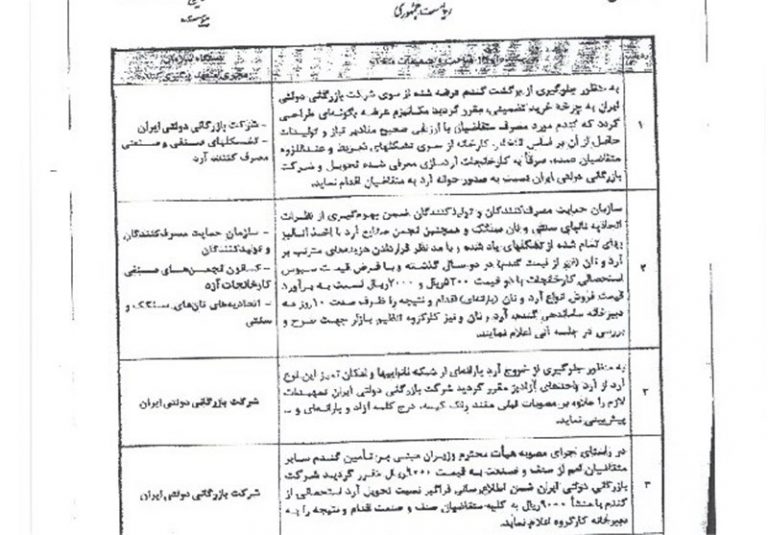 ریاست جمهوری
به منظور جلوگیری از برگشت گندم عرضه شده از سوی شرکت بازرگانی دولتی
ایران به چرخه خرید تضمینی، مقرر گردید مکانیزم عرضه بگونه‌ای طراحی
گردد که گندم مورد مصرف متقاضیان با ارزیابی صحیح مقادیر نیاز و تولیدات
حاصل از آن بر اساس کارخانه از سوی تشکلهای ذیربط و عنداللزوم
متقاضیان عمده، صرفاً به کارخانجات آردسازی معرفی شده تحویل و شرکت
بازرگانی دولتی ایران نسبت به صدور حواله آرد به متقاضیان اقدام نماید.
۱
- شرکت بازرگانی دولتی ایران
- تشکلهای صنفی و صنعتی
مصرف کننده آرد
سازمان حمایت مصرف‌کنندگان و تولیدکنندگان ضمن بهره‌گیری از نظرات
اتحادیه نانهای سنتی و نان سنگک و همچنین انجمن صنایع آرد با اخذ آنالیز
بهای تمام شده از تشکلهای یاد شده و با مد نظر قراردادن هزینه‌های مترتب بر
آرد و نان (غیر از قیمت گندم) در دو سال گذشته و با فرض قیمت سبوس
استحصالی کارخانجات با دو قیمت ۵۲۰۰ریال و ۷۰۰۰ریال نسبت به برآورد
قیمت فروش انواع آرد و نان (یارانه‌ای) اقدام و نتیجه را ظرف مدت ۱۰ روز به
دبیرخانه ساماندهی گندم، آرد و نان و نیز کارگروه تنظیم بازار جهت طرح و
بررسی در جلسه آتی اعلام نمایند.
۲
- سازمان حمایت مصرف‌کنندگان
و تولیدکنندگان
- کانون انجمن‌های صنفی
کارخانجات آرد
- اتحادیه‌های نان‌های سنگک و
سنتی
به منظور جلوگیری از خروج آرد یارانه‌ای از شبکه نانواییها و امکان تمیز این نوع
آرد از آرد واحدهای آزادپز مقرر گردید شرکت بازرگانی دولتی ایران تمهیدات
لازم را علاوه بر مصوبات قبلی مانند رنگ کیسه، درج کلمه آزاد و یارانه‌ای و ...
پیش‌بینی نماید.
۳
شرکت بازرگانی دولتی ایران
در راستای اجرای مصوبه هیأت محترم وزیران مبنی بر تأمین گندم سایر
متقاضیان اعم از صنف و صنعت به قیمت ۹۰۰۰ریال مقرر گردید شرکت
بازرگانی دولتی ایران ضمن اطلاع‌رسانی فراگیر نسبت تحویل آرد استحصالی از
گندم با منشأ ۹۰۰۰ریال به کلیه متقاضیان صنف و صنعت اقدام و نتیجه را به
دبیرخانه کارگروه اعلام نماید.
۴
شرکت بازرگانی دولتی ایران